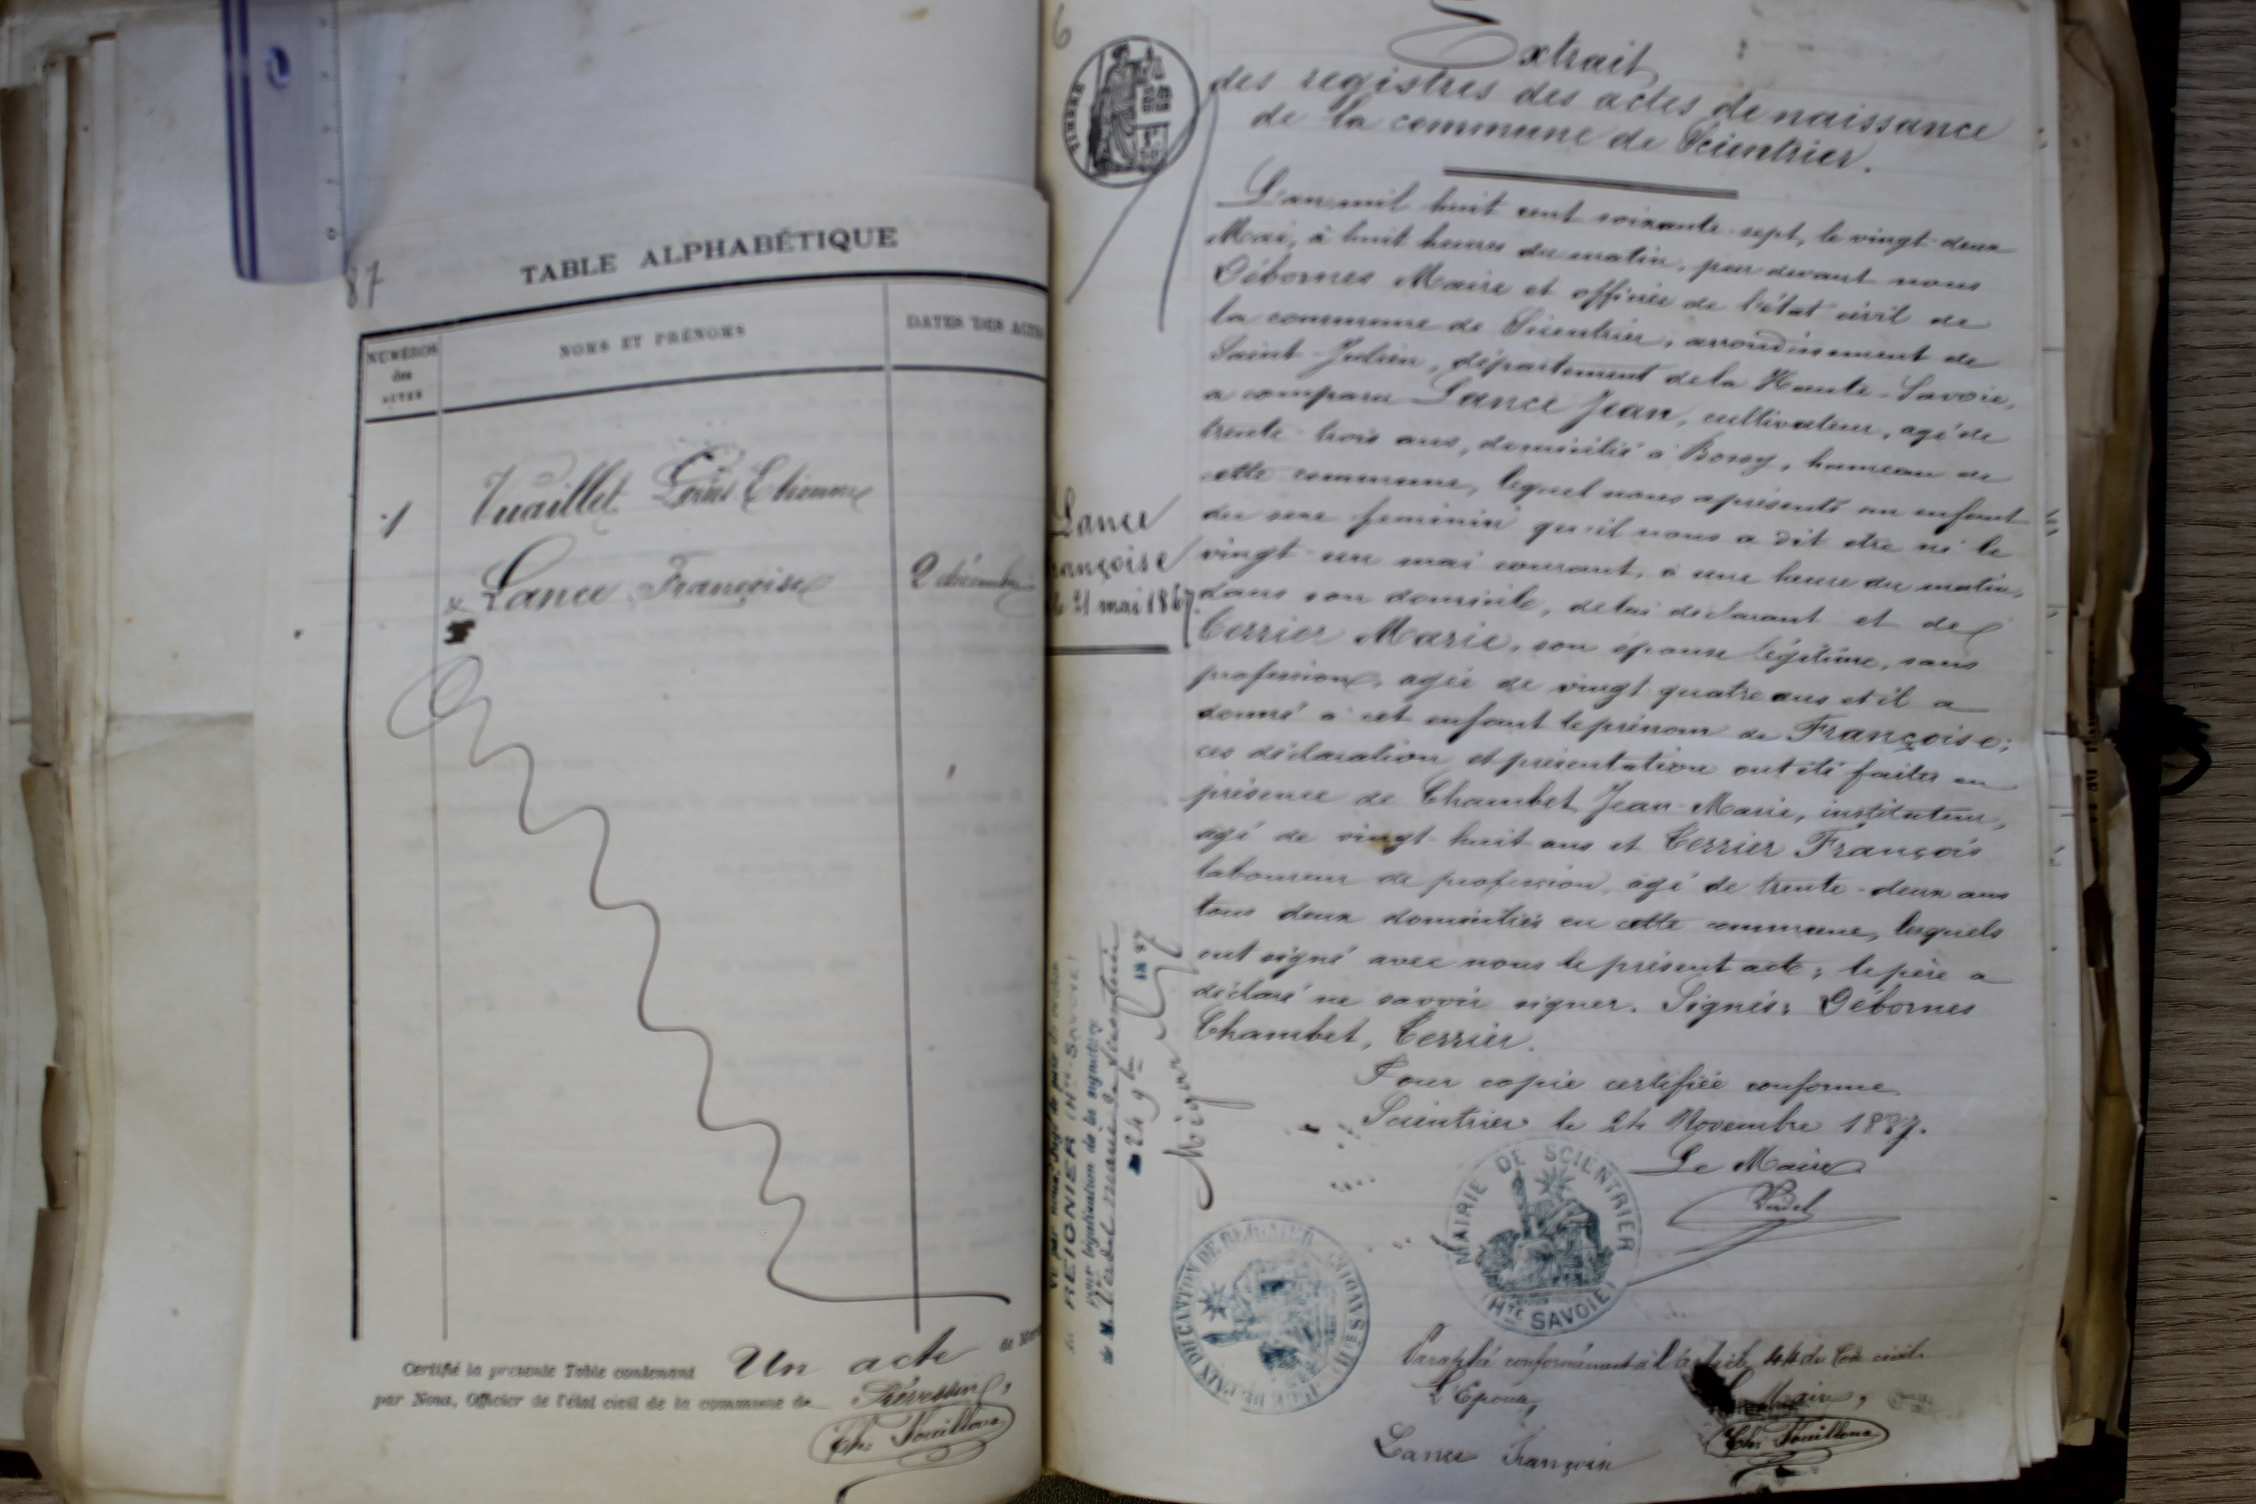 87
TABLE ALPHABÉTIQUE
NUMÉROS des ACTES
NOMS ET PRÉNOMS
DATES DES ACTES
1
Vuaillet Louis Etienne
& Lance Françoise
2 décembre
Certifié la presente Table contenant Un acte de
par Nous, Officier de l'état civil de la commune de
6
TIMBRE
Extrait
des registres des actes de naissance
de la commune de Scientrier.
L'an mil huit cent soixante-sept, le vingt-deux
Mai, à huit heures du matin, par devant nous
Débornes Maire et officier de l'état civil de
la commune de Scientrier, arrondissement de
Saint-Julien, département de la Haute-Savoie,
a comparu Lance Jean, cultivateur, agé de
trente-trois ans, domicilié à Bossy, hameau de
cette commune, lequel nous a présenté un enfant
du sexe féminin qu'il nous a dit etre né le
vingt-un mai courant, à une heure du matin,
dans son domicile, de lui déclarant et de
Cerrier Marie, son épouse légitime, sans
profession, agée de vingt quatre ans et il a
donné à cet enfant le prénom de Françoise;
ces déclaration et présentation ont été faites en
présence de Chambet Jean-Marie, instituteur,
agé de vingt-huit ans et Cerrier François
laboureur de profession, agé de trente-deux ans
tous deux domiciliés en cette commune, lesquels
ont signé avec nous le présent acte; le père a
déclaré ne savoir signer. Signés: Débornes
Chambet, Cerrier.
Pour copie certifiée conforme
Scientrier le 24 Novembre 1887.
Le Maire
Verdel
Lance
Françoise
le 21 mai 1867.
REIGNIER (Hte-SAVOIE)
pour légalisation de la signature
de M. Verdel maire de Scientrier
24 9bre 1887
MAIRIE DE SCIENTRIER
(Hte SAVOIE)
Paraphé conformément à l'article 44 du Code civil
L'Epouse,
Le Maire,
Lance Françoise